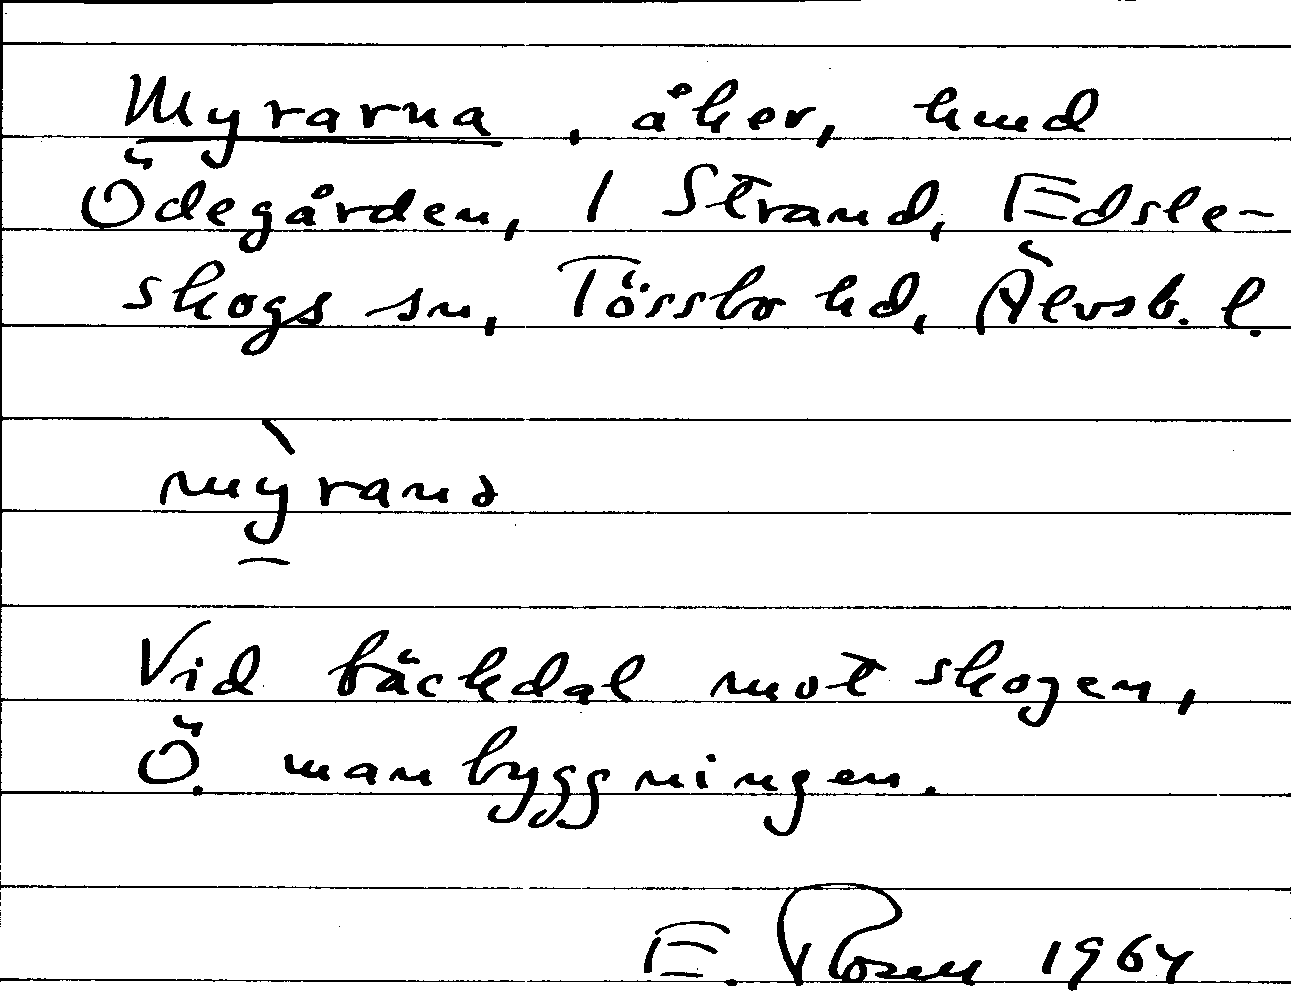 Myrarna, åker, hmd
Ödegården, 1 Strand, Edsle-
skogs sn, Tössbo hd, Älvsb. l.
mỳ̲ranə
Vid bäckdal mot skogen,
Ö. manbyggningen.
E. Rosen 1964